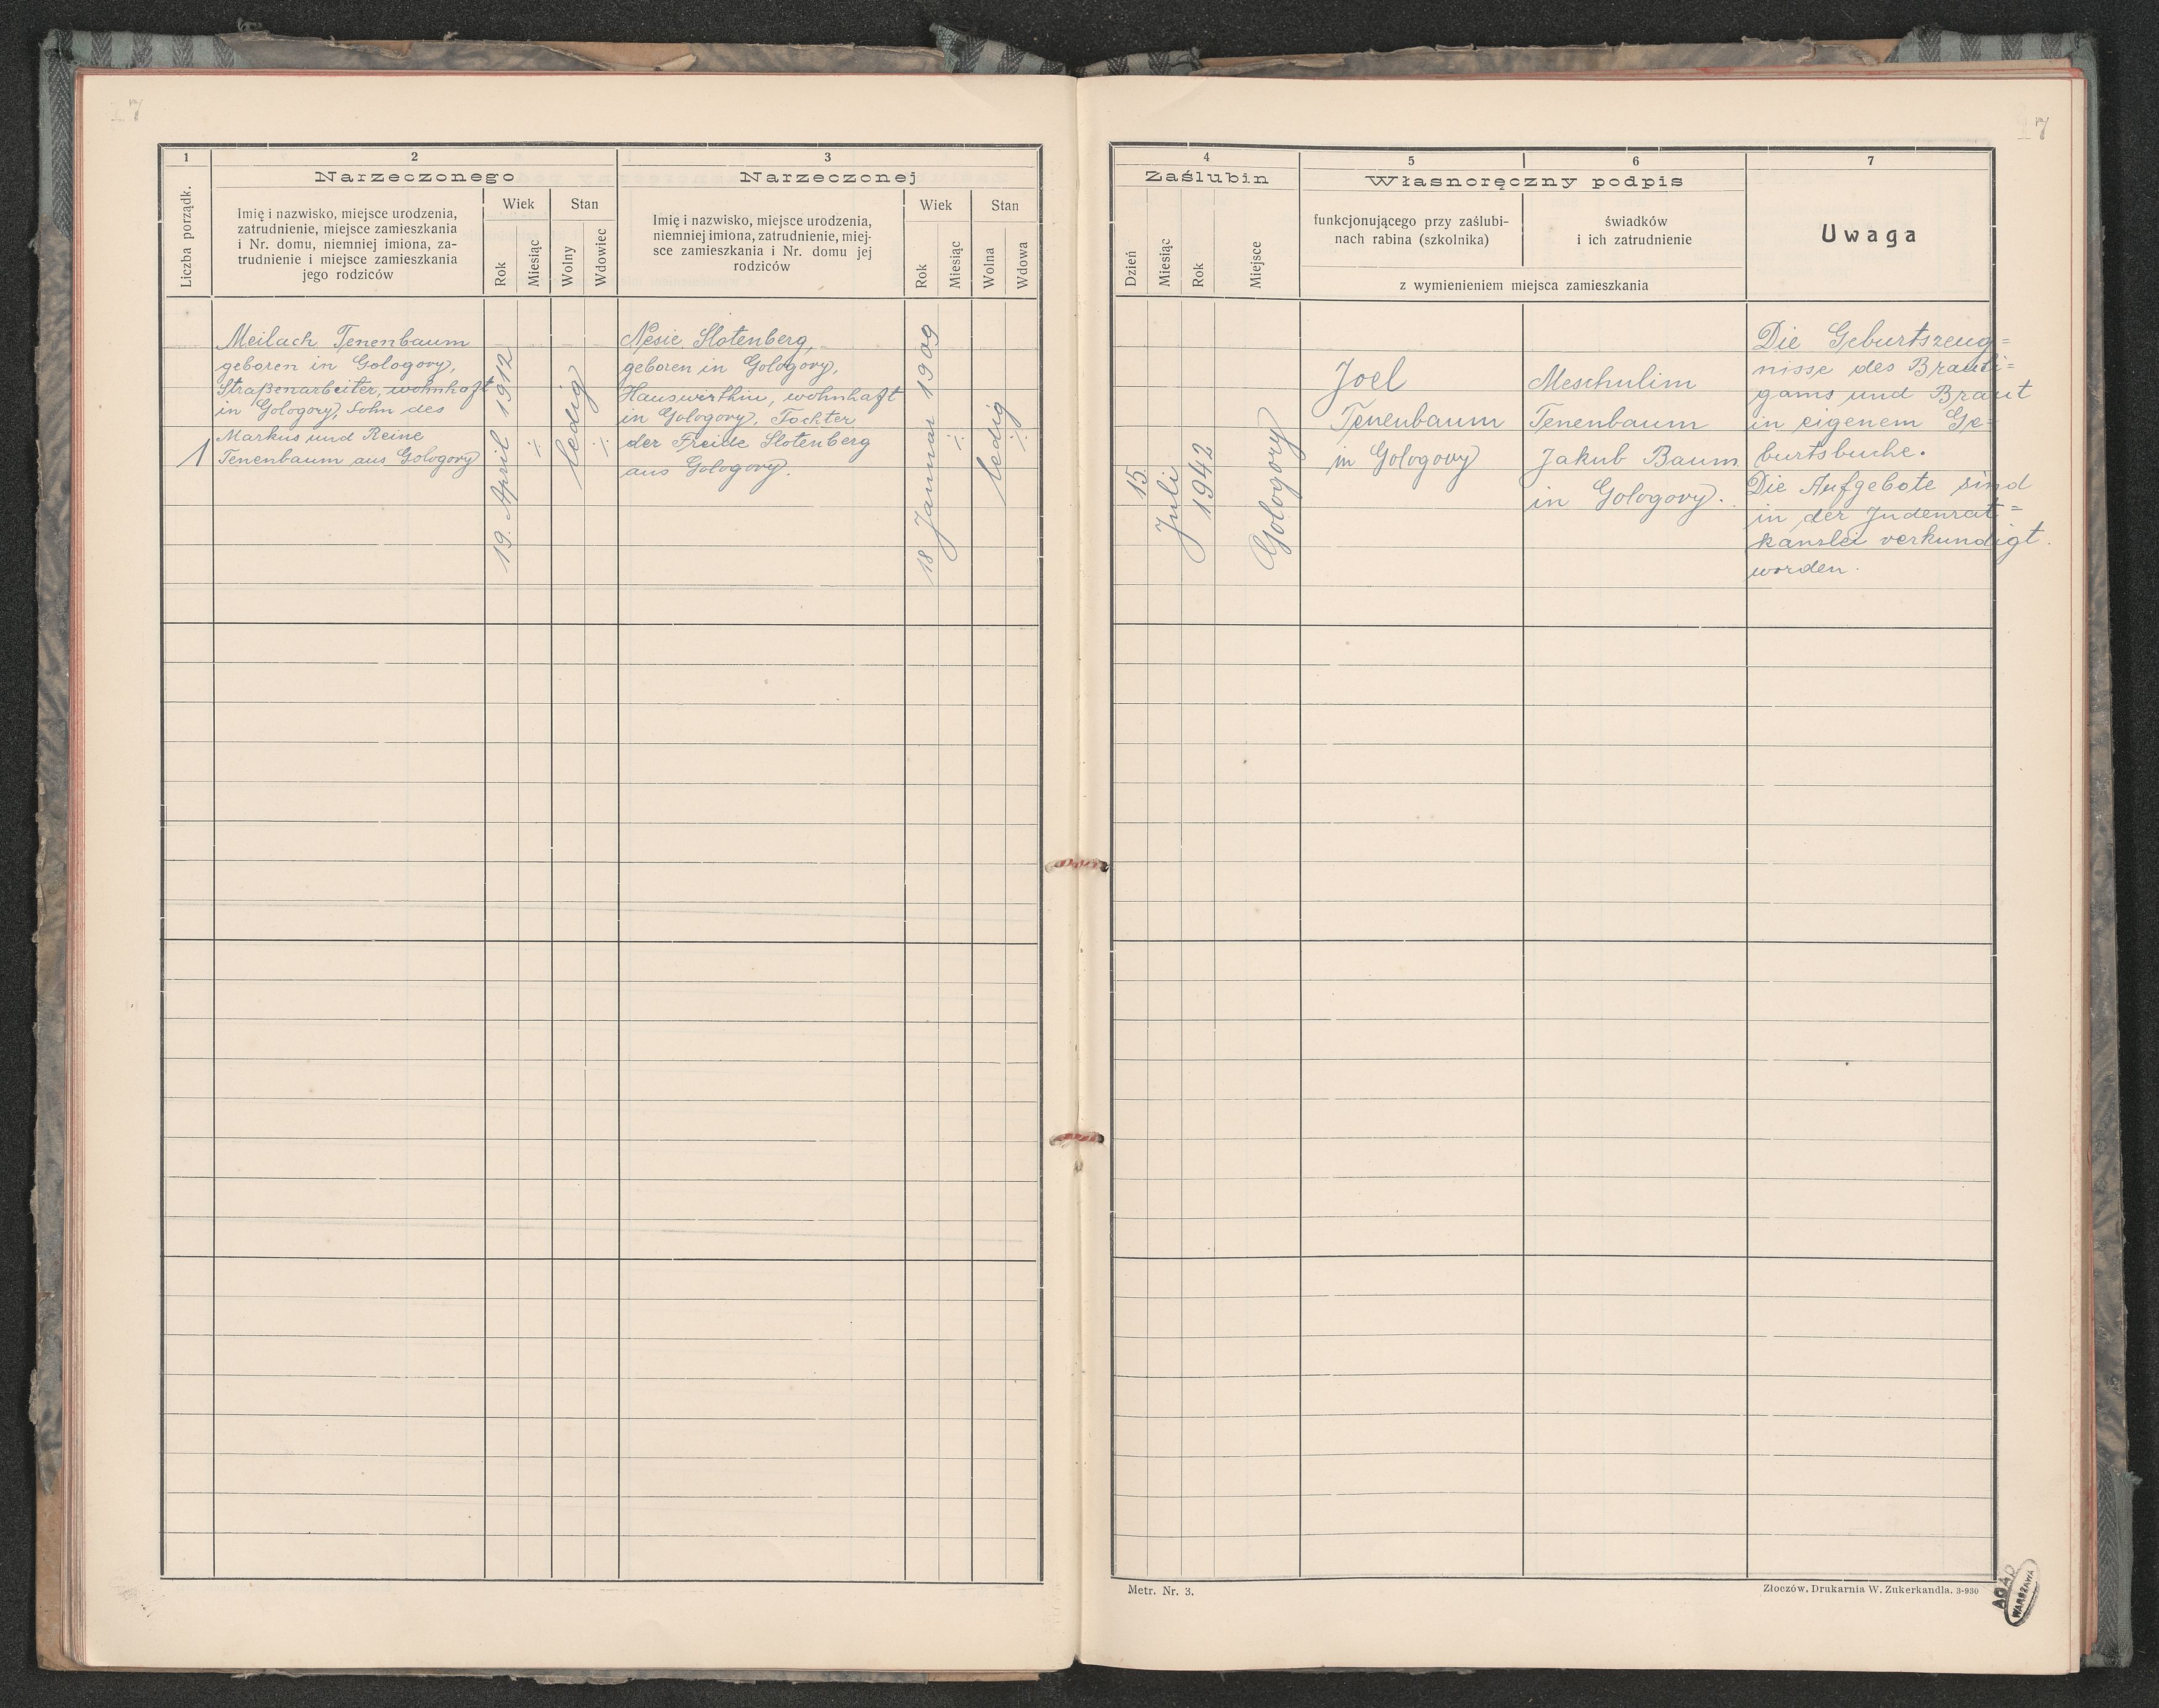 17
17
1
2
3
Narzeczonego
Narzeczonej
Liczba porządk.
Imię i nazwisko, miejsce urodzenia,
zatrudnienie, miejsce zamieszkania
i Nr. domu, niemniej imiona, za-
trudnienie i miejsce zamieszkania
jego rodziców
Wiek
Stan
Rok
Miesiąc
Wolny
Wdowiec
Imię i nazwisko, miejsce urodzenia,
niemniej imiona, zatrudnienie, miej-
sce zamieszkania i Nr. domu jej
rodziców
Wiek
Stan
Rok
Miesiąc
Wolna
Wdowa
1
Meilach Tenenbaum
geboren in Gologory,
Straßenarbeiter, wohnhaft
in Gologory, Sohn des
Markus und Reine
Tenenbaum aus Gologory
19. April 1912
ledig
Nesie Slotenberg,
geboren in Gologory,
Hauswirthin, wohnhaft
in Gologory, Tochter
der Freide Slotenberg
aus Gologory.
18 Januar 1909
ledig
4
5
6
7
Zaślubin
Własnoręczny podpis
Dzień
Miesiąc
Rok
Miejsce
funkcjonującego przy zaślubi-
nach rabina (szkolnika)
świadków
i ich zatrudnienie
z wymienieniem miejsca zamieszkania
Uwaga
15
Juli
1942
Gologory
Joel
Tenenbaum
in Gologory
Meschulim
Tenenbaum
Jakub Baum
in Gologory.
Die Geburtszeug=
nisse des Brauti=
gams und Braut
in eigenem Ge=
burtsbuche.
Die Aufgebote sind
in der Judenrat=
kanzlei verkundigt
worden.
Metr. Nr. 3.
Złoczów, Drukarnia W. Zukerkandla. 3-930
AGAD
WARSZAWA